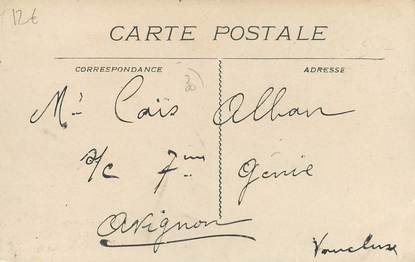 12€
CARTE POSTALE
CORRESPONDANCE
ADRESSE
Mr Caïs Alban
s/c 7me Génie
Avignon
Vaucluse